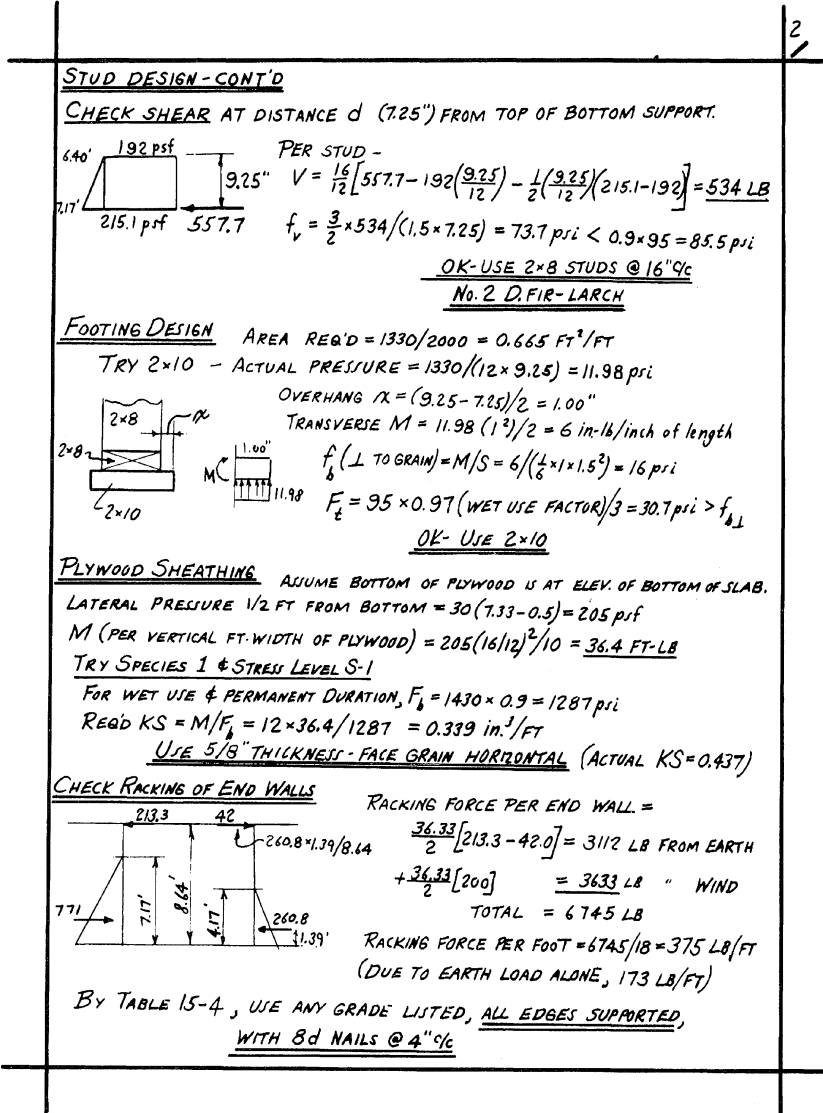 2/
STUD DESIGN - CONT'D
CHECK SHEAR AT DISTANCE d (7.25") FROM TOP OF BOTTOM SUPPORT.
6.40'
192 psf
9.25"
7.17'
215.1 psf
557.7
PER STUD -
V = 16/12 [557.7 - 192(9.25/12) - 1/2(9.25/12)(215.1-192)] = 534 LB
f_v = 3/2 × 534/(1.5 × 7.25) = 73.7 psi < 0.9 × 95 = 85.5 psi
OK- USE 2×8 STUDS @ 16" c/c
No. 2 D. FIR - LARCH
FOOTING DESIGN
AREA REQ'D = 1330/2000 = 0.665 FT²/FT
TRY 2×10 - ACTUAL PRESSURE = 1330/(12 × 9.25) = 11.98 psi
OVERHANG x = (9.25 - 7.25)/2 = 1.00"
TRANSVERSE M = 11.98 (1²)/2 = 6 in-lb/inch of length
2×8
x
2×8
2×10
1.00"
M
11.98
f_b (⊥ TO GRAIN) = M/S = 6/(1/6 × 1 × 1.5²) = 16 psi
F_t = 95 × 0.97 (WET USE FACTOR)/3 = 30.7 psi > f_b⊥
OK- USE 2×10
PLYWOOD SHEATHING
ASSUME BOTTOM OF PLYWOOD IS AT ELEV. OF BOTTOM OF SLAB.
LATERAL PRESSURE 1/2 FT FROM BOTTOM = 30 (7.33 - 0.5) = 205 psf
M (PER VERTICAL FT. WIDTH OF PLYWOOD) = 205(16/12)²/10 = 36.4 FT-LB
TRY SPECIES 1 & STRESS LEVEL S-1
FOR WET USE & PERMANENT DURATION, F_b = 1430 × 0.9 = 1287 psi
REQ'D KS = M/F_b = 12 × 36.4/1287 = 0.339 in.³/FT
USE 5/8" THICKNESS - FACE GRAIN HORIZONTAL (ACTUAL KS = 0.437)
CHECK RACKING OF END WALLS
213.3
42
260.8×1.39/8.64
771
7.17'
8.64'
4.17'
260.8
1.39'
RACKING FORCE PER END WALL =
36.33/2 [213.3 - 42.0] = 3112 LB FROM EARTH
+ 36.33/2 [200] = 3633 LB " WIND
TOTAL = 6745 LB
RACKING FORCE PER FOOT = 6745/18 = 375 LB/FT
(DUE TO EARTH LOAD ALONE, 173 LB/FT)
BY TABLE 15-4, USE ANY GRADE LISTED, ALL EDGES SUPPORTED,
WITH 8d NAILS @ 4" c/c